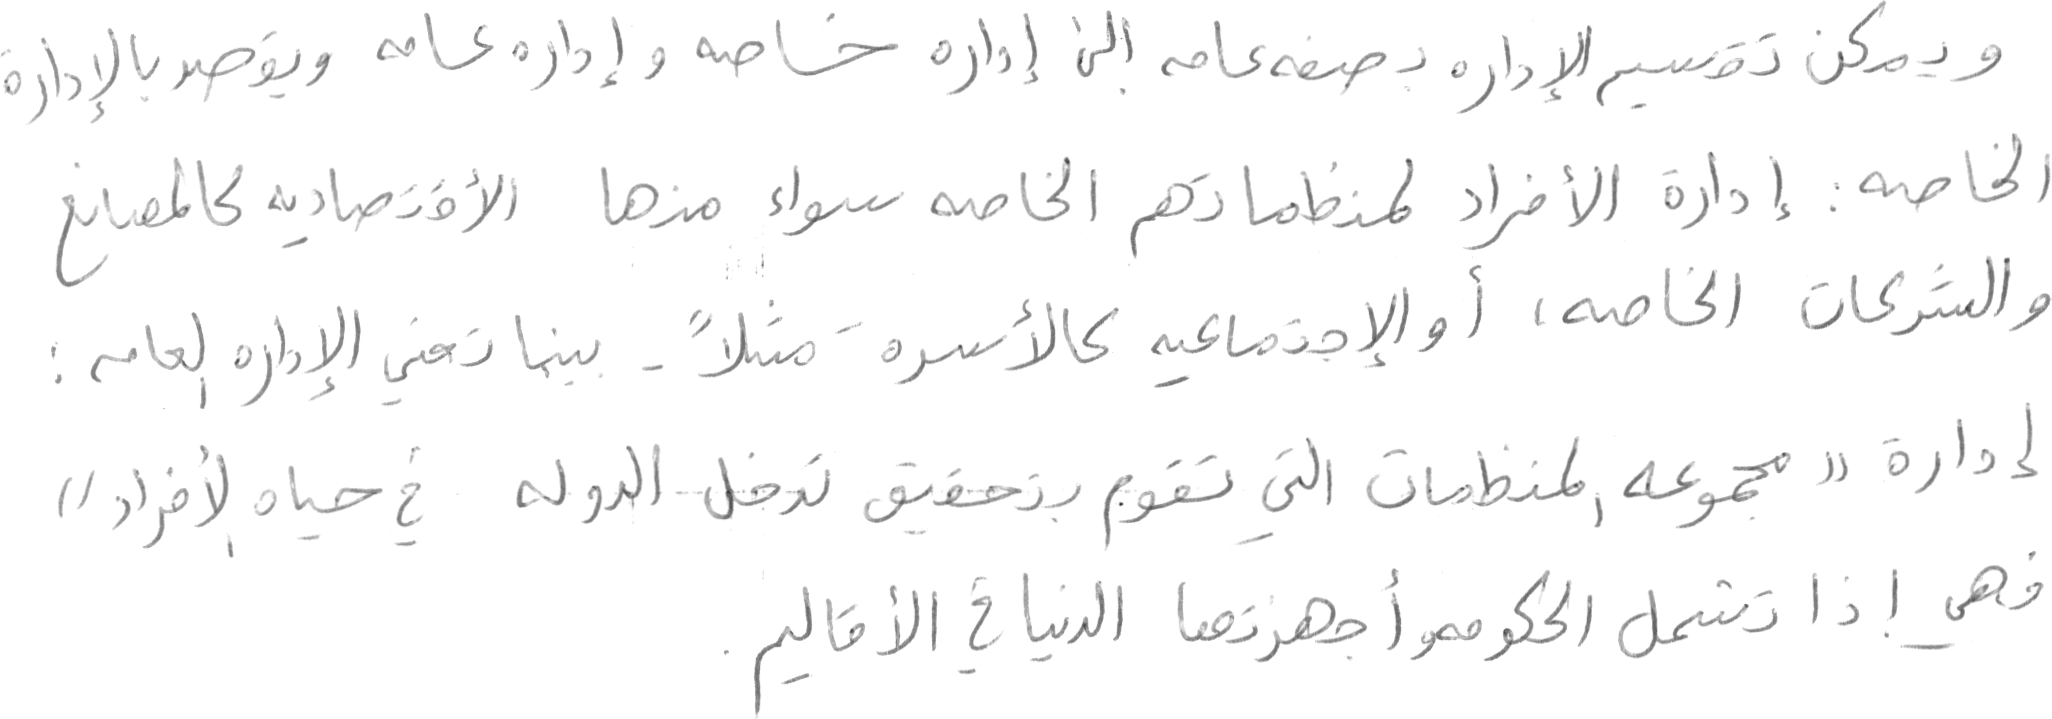 ويمكن تقسيم الإداره بصفه عامه إلى إداره خاصه وإداره عامه ويقصد بالإدارة
الخاصه : إدارة الأفراد لمنظماتهم الخاصه سواء منها الأقتصاديه كالمصانع
والشركات الخاصه، أو الإجتماعيه كالأسره - مثلاً - بينما تعني الإداره العامه :
إدارة "مجموعه المنظمات التي تقوم بتحقيق تدخل الدوله في حياه الأفراد"
فهي إذا تشمل الحكومه وأجهزتها الدنيا في الأقاليم.